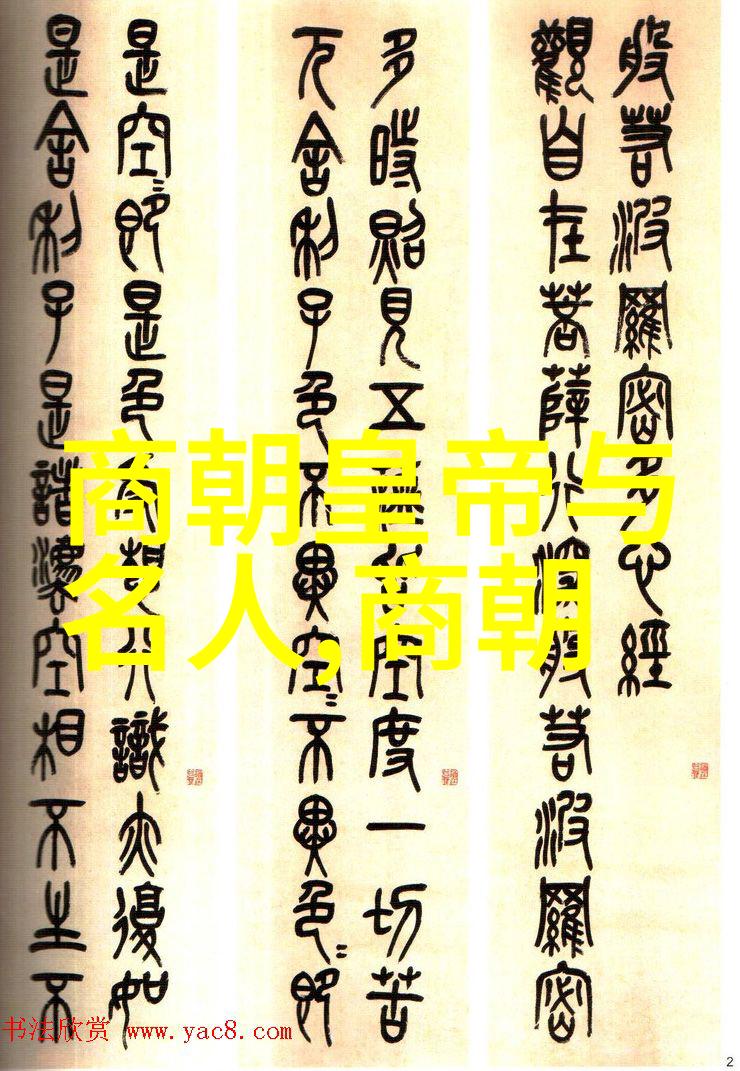 般若波羅密多心經
觀自在菩薩行深般若波羅密
多時照見五蘊皆空度一切苦
厄舍利子色不異空〻不異色〻即
是空〻即是色受想行識亦復如
是舍利子是諸法空相不生不
商朝皇帝与
名人,商朝
书法欣赏 www.yac8.com
2